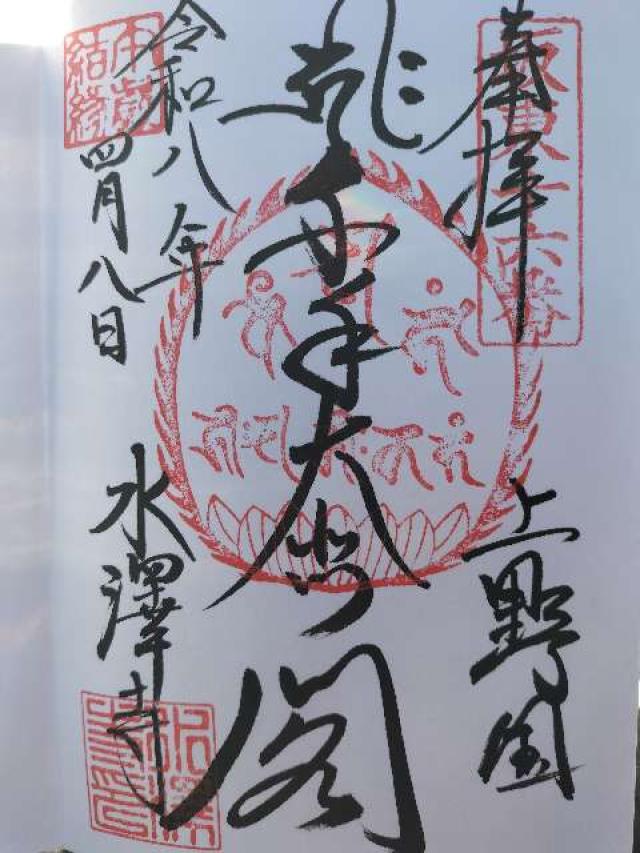 奉拝
坂東十六番
上野国
千手大悲閣
令和八年
四月八日
午歳
結縁
水澤寺